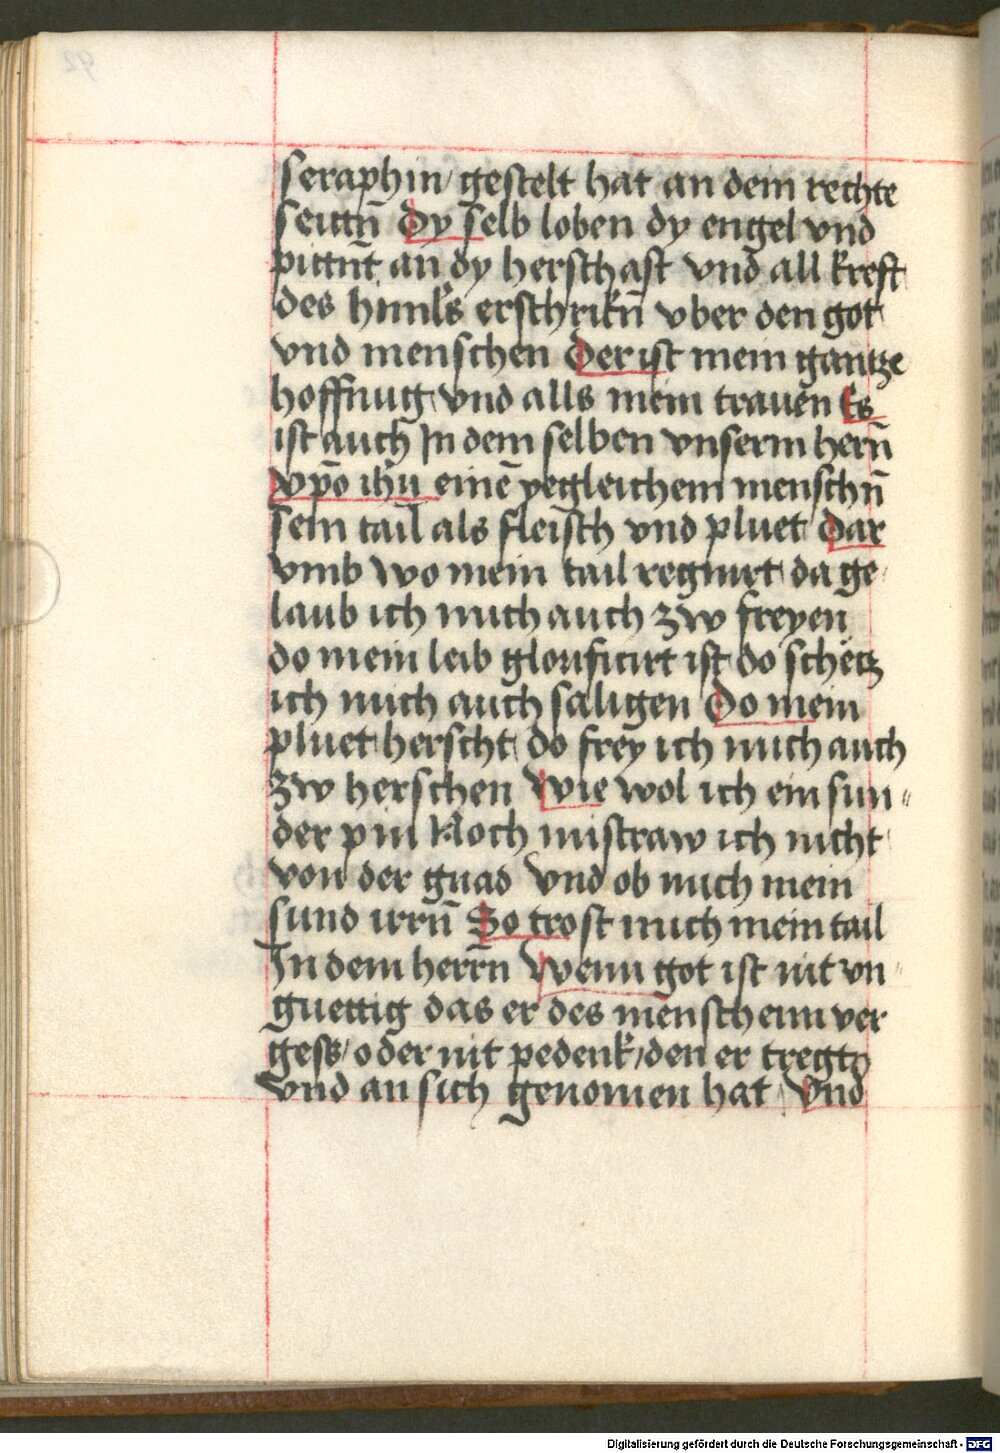 seraphin / gestelt hat an dem rechte
seittn̄ Dy selb loben dy engel vnd
pittnt̄ an dy herschaft vnd all kreft
des himl's erschrikn̄ vber den got
vnd menschen Der ist mein gantze
hoffnūg vnd alls mein trauen Es
ist auch In dem selben vnserm hern̄
xp̄o ih̄u einē yegleichem menschn̄
sein tail als fleisch vnd pluet Dar
vmb wo mein tail regnirt da ge
laub ich mich auch zw freyen
do mein leib glorificirt ist do schetz
ich mich auch saligen Do mein
pluet herscht do frey ich mich auch
zw herschen Wie wol ich ein sun =
der pin Noch mistraw ich nicht
von der gnad Vnd ob mich mein
sund irrn̄ So trost mich mein tail
In dem herrn̄ Wenn got ist nit vn =
guettig das er des menschenn ver
gess / oder nit pedenk / den er tregt
vnd an sich genomen hat Vnd
Digitalisierung gefördert durch die Deutsche Forschungsgemeinschaft - DFG